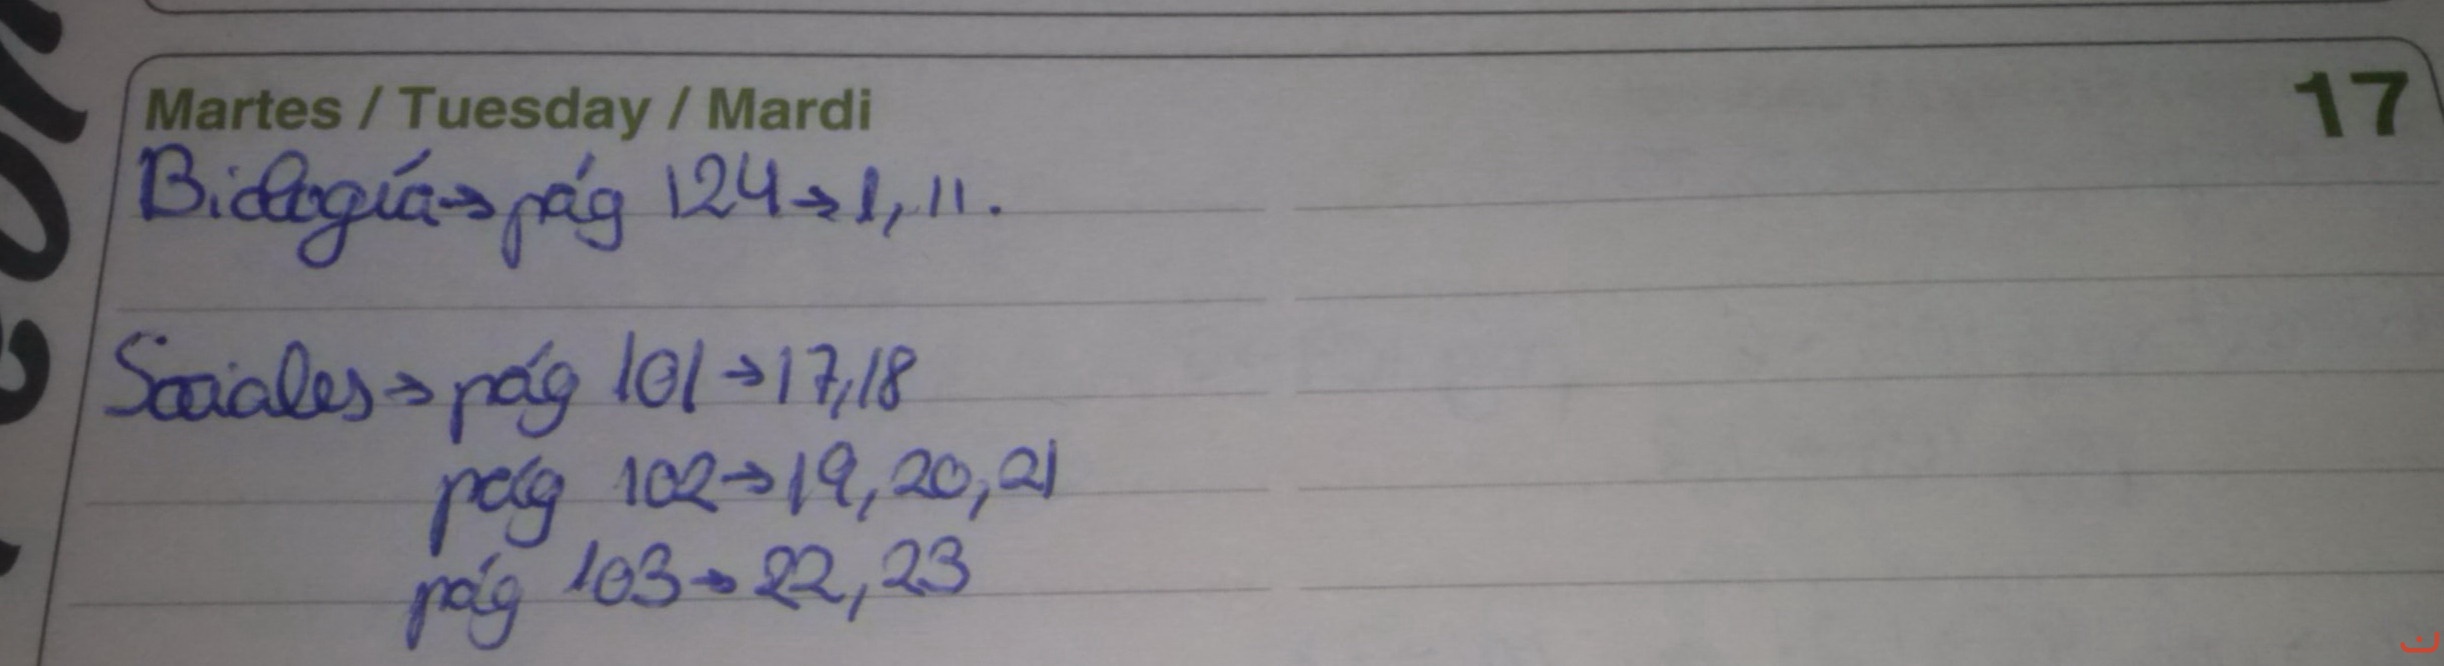 Martes / Tuesday / Mardi 17
Biología → pág 124 → 1, 11.
Sociales → pág 101 → 17, 18
pág 102 → 19, 20, 21
pág 103 → 22, 23